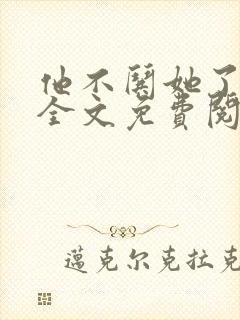 他不闗她了
全文免費閱
邁克尔克拉克